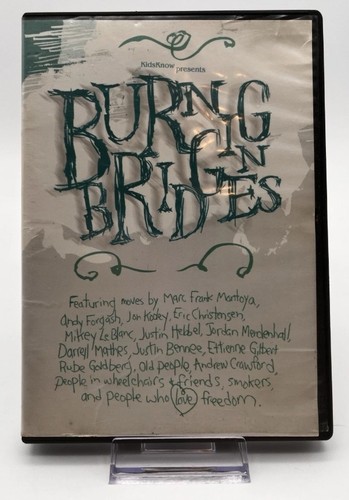 KidsKnow presents
BURNING
IN
BRIDGES
Featuring moves by Marc Frank Montoya,
Andy Forgash, Jon Kooley, Eric Christensen,
Mikey LeBlanc, Justin Hebbel, Jordan Mendenhall,
Darrell Mathes, Justin Bennee, Ettienne Gilbert
Rube Goldberg, old people, Andrew Crawford,
people in wheelchairs & friends, smokers,
and people who love freedom.